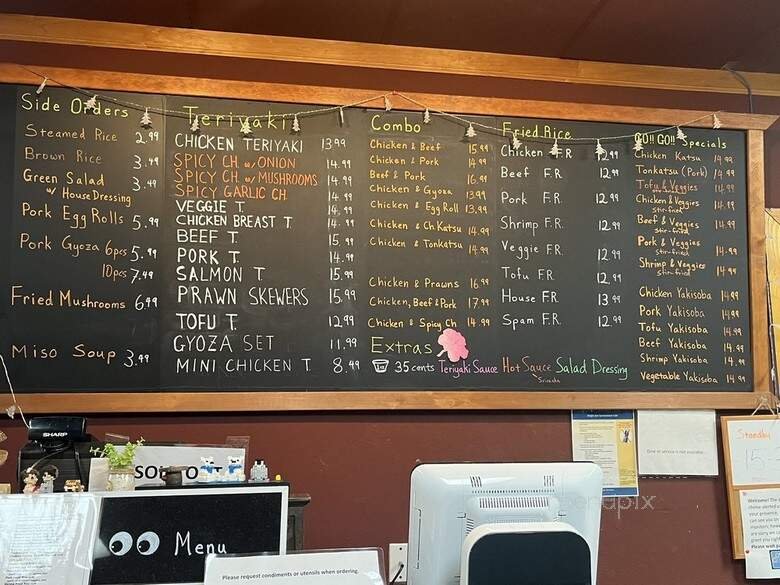 Side Orders
Steamed Rice 2.99
Brown Rice 3.49
Green Salad 3.49
w/ House Dressing
Pork Egg Rolls 5.99
Pork Gyoza 6pcs 5.99
10pcs 7.49
Fried Mushrooms 6.99
Miso Soup 3.49
Teriyaki
CHICKEN TERIYAKI 13.99
SPICY CH. w/ ONION 14.99
SPICY CH. w/ MUSHROOMS 14.99
SPICY GARLIC CH. 14.99
VEGGIE T. 14.99
CHICKEN BREAST T. 14.99
BEEF T. 15.99
PORK T. 14.99
SALMON T. 15.99
PRAWN SKEWERS 15.99
TOFU T. 12.99
GYOZA SET 11.99
MINI CHICKEN T. 8.49
Combo
Chicken & Beef 15.99
Chicken & Pork 14.99
Beef & Pork 16.99
Chicken & Gyoza 13.99
Chicken & Egg Roll 13.99
Chicken & Ch.Katsu 14.99
Chicken & Tonkatsu 14.99
Chicken & Prawns 16.99
Chicken, Beef & Pork 17.99
Chicken & Spicy Ch. 14.99
Extras
35 cents Teriyaki Sauce Hot Sauce Salad Dressing
Sriracha
Fried Rice
Chicken F.R. 12.99
Beef F.R. 12.99
Pork F.R. 12.99
Shrimp F.R. 12.99
Veggie F.R. 12.99
Tofu F.R. 12.99
House F.R. 13.99
Spam F.R. 12.99
GO!! GO!! Specials
Chicken Katsu 14.99
Tonkatsu (Pork) 14.99
Tofu & Veggies 14.99
Chicken & Veggies 14.99
stir-fried
Beef & Veggies 14.99
stir-fried
Pork & Veggies 14.99
stir-fried
Shrimp & Veggies 14.99
stir-fried
Chicken Yakisoba 14.99
Pork Yakisoba 14.99
Tofu Yakisoba 14.99
Beef Yakisoba 14.99
Shrimp Yakisoba 14.99
Vegetable Yakisoba 14.99
SHARP
SOLD OUT
Menu
Please request condiments or utensils when ordering.
Standby
15-
Welcome!